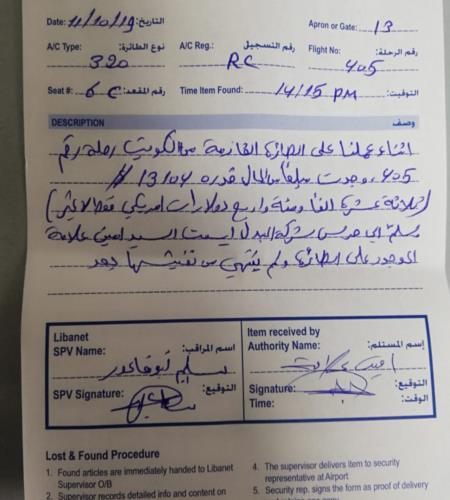 Date: 11/10/19 التاريخ: Apron or Gate: 13
A/C Type: نوع الطائرة: A/C Reg.: رقم التسجيل Flight No: رقم الرحلة:
320 RC 405
Seat #: 6 C رقم المقعد: Time Item Found: 14/15 PM التوقيت:
DESCRIPTION وصف
اثناء عملنا على الطائرة القادمة من الكويت رحلة رقم
405، وجدت مبلغاً من المال قدره 13104 $
(ثلاثة عشرة الفاً ومئة واربع دولارات امريكي فقط لا غير)
سلم الى حرس شركة السيد امين علامة
الموجود على الطائرة ولم ينتهي من تفتيشها بعد
Libanet
SPV Name: اسم المراقب:
سليم ابو فاعور
SPV Signature: التوقيع:
Item received by
Authority Name: إسم المستلم:
امين علامة
Signature: التوقيع:
Time: الوقت:
Lost & Found Procedure
1. Found articles are immediately handed to Libanet
Supervisor O/B
2. Supervisor records detailed info and content on
4. The supervisor delivers item to security
representative at Airport
5. Security rep. signs the form as proof of delivery